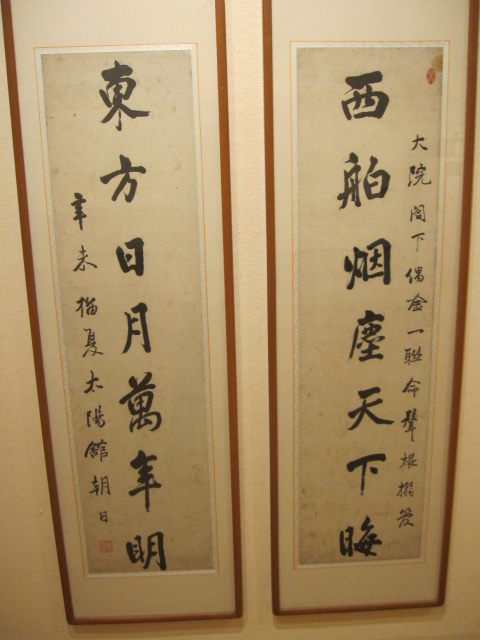 大院閤下偶一聯命聲根搨
西舶烟塵天下晦
東方日月萬年明
辛未榴夏太陽館朝日